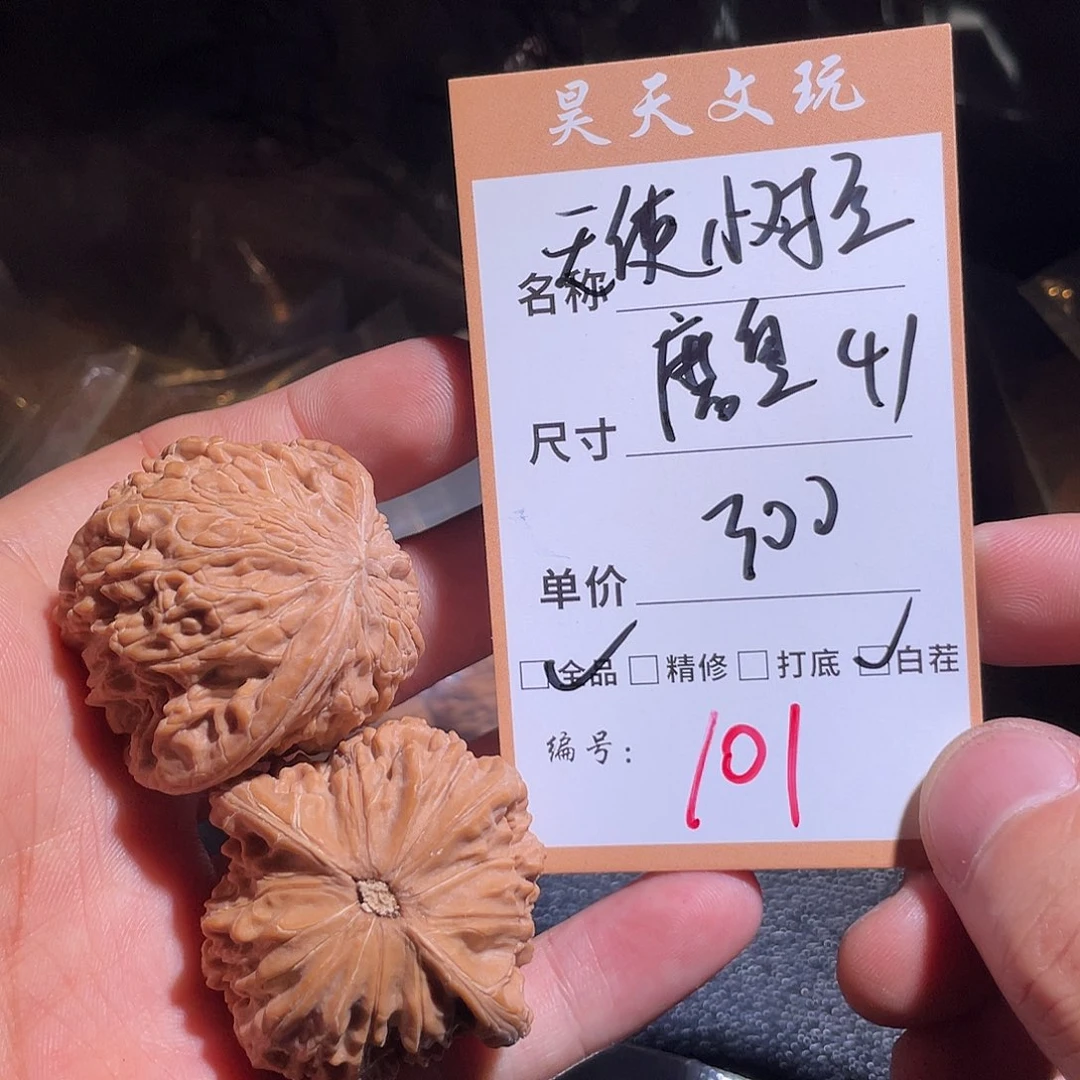 昊天文玩
名称 天使树王
尺寸 磨盘 41
单价 300
全品 精修 打底 白茬
编号: 101